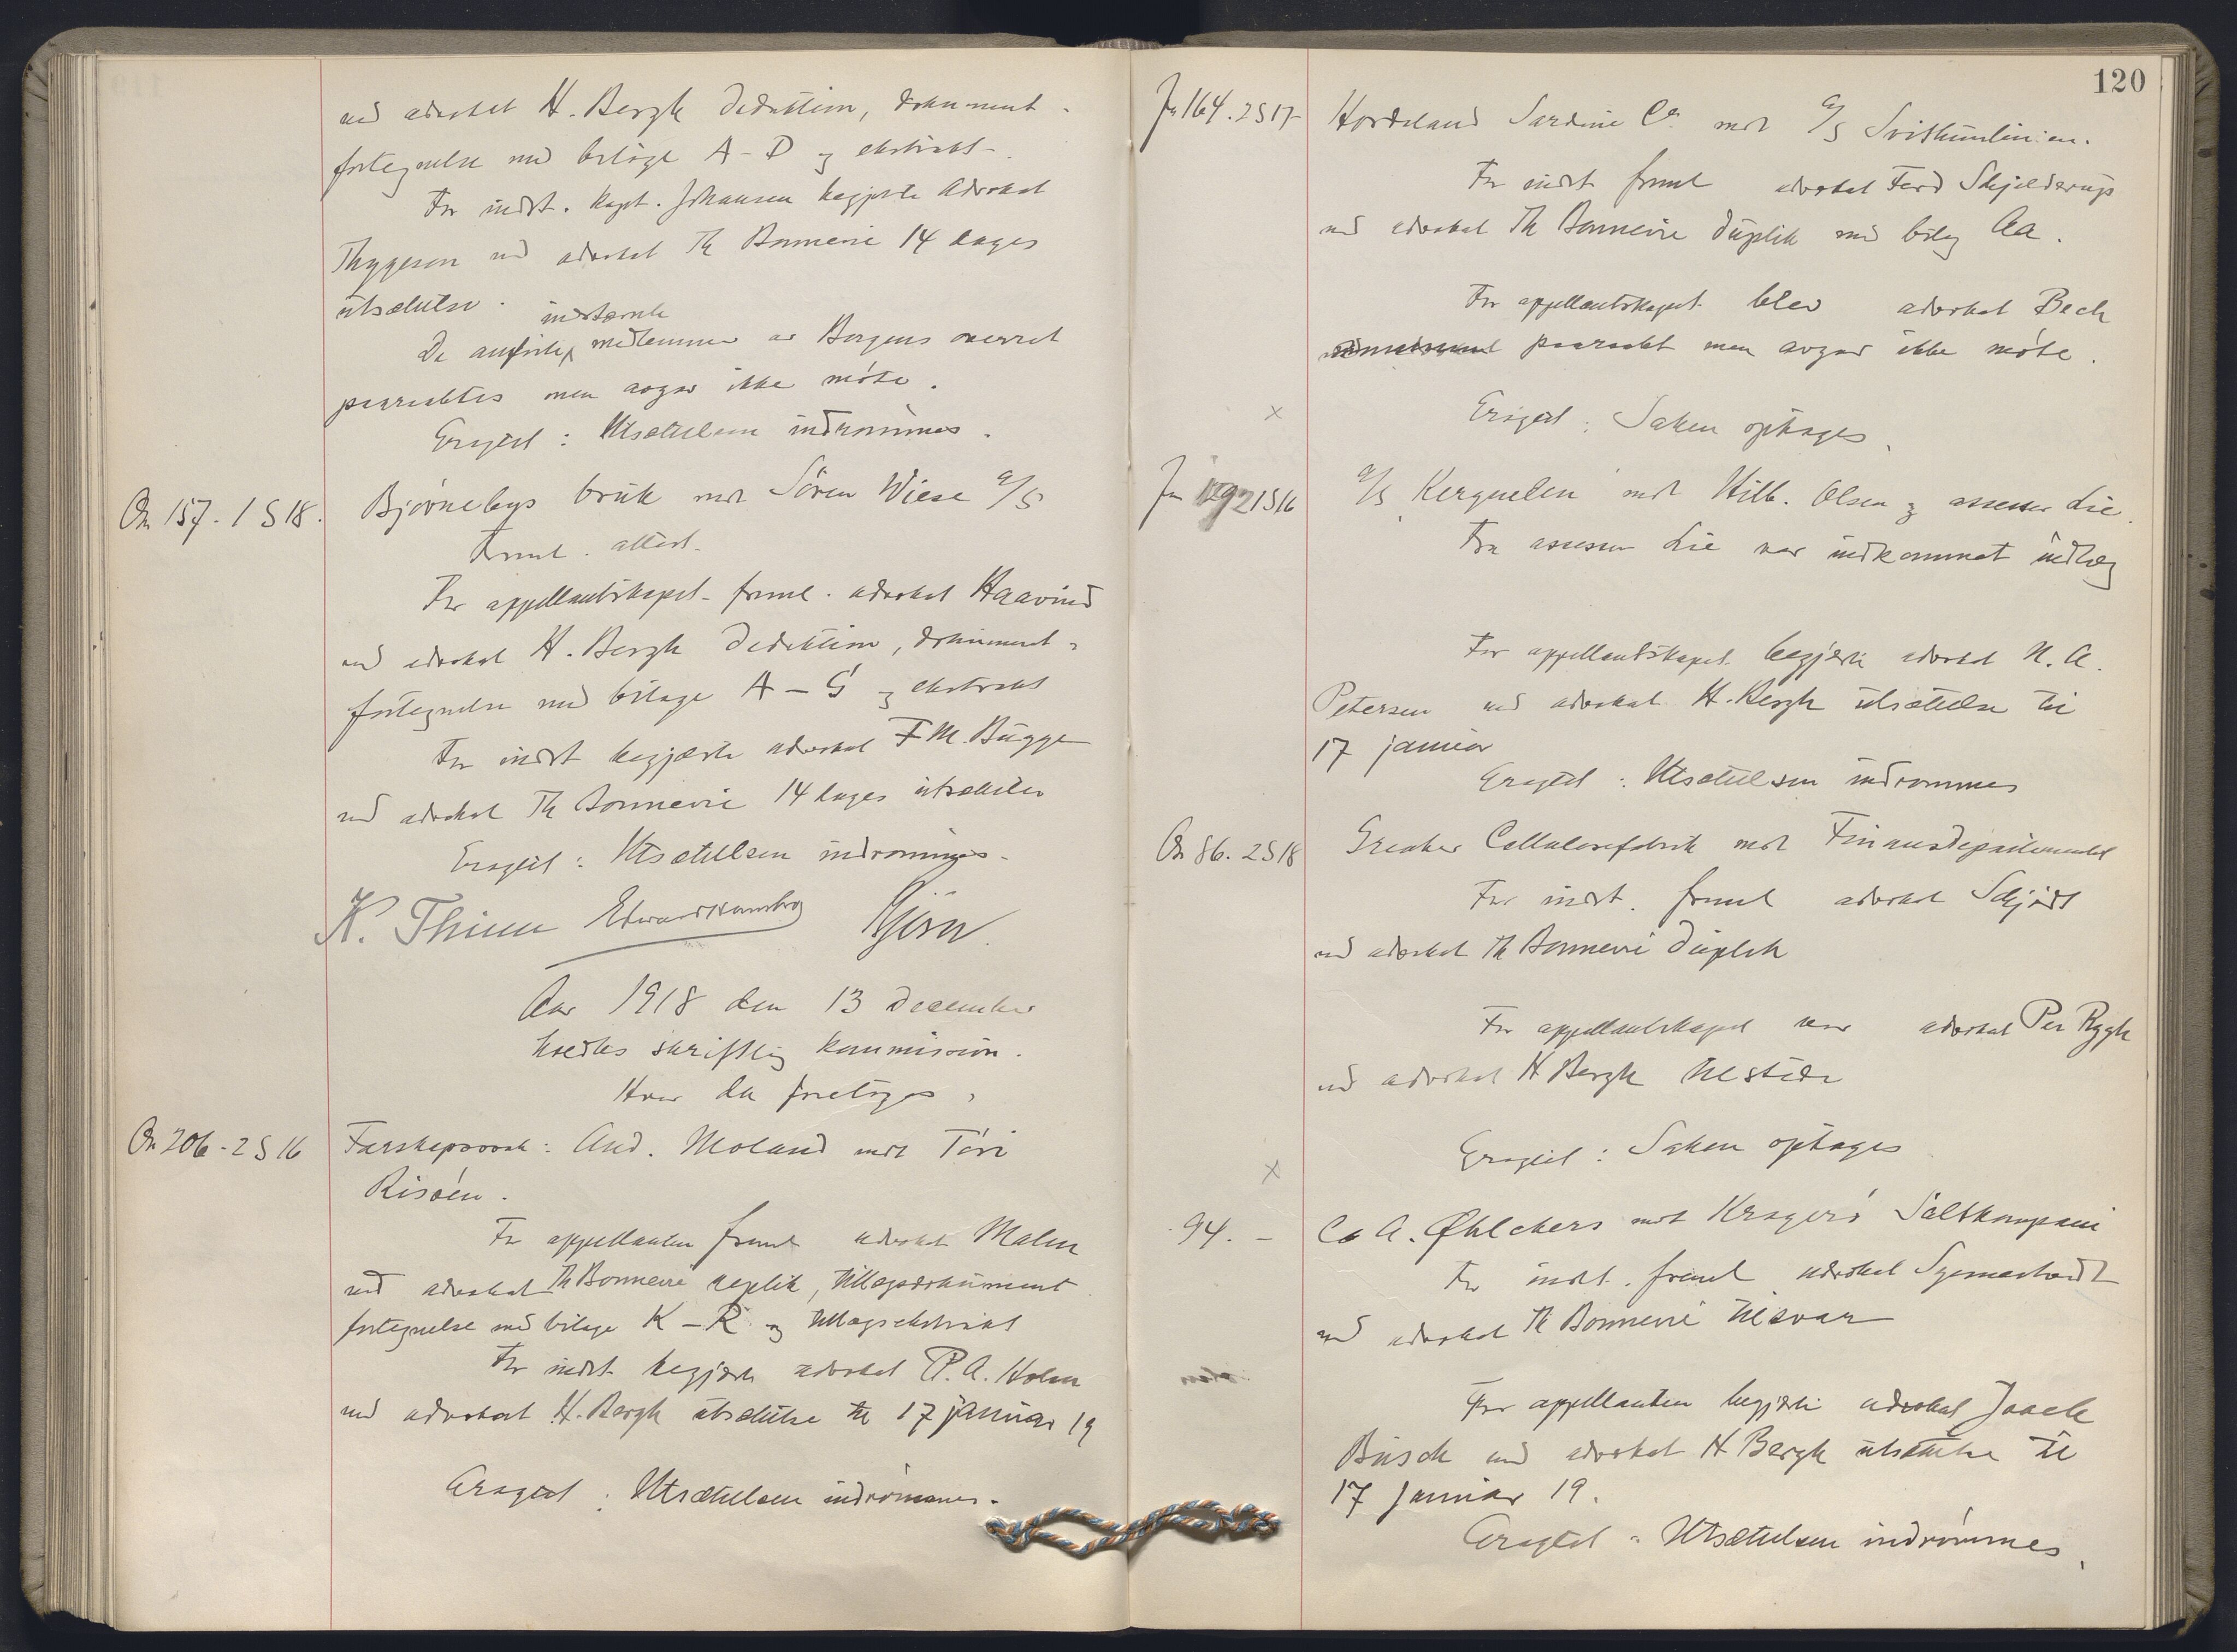 ved advokat H. Bergh deduktion, dokument-
fortegnelse med bilage A-D og ekstrakt.
For indst. kapt. Johansen begjærte advokat
Thygeson ved advokat Th Bonnevie 14 dages
utsættelse.
indstævnte
De medlemmer av Bergens overret
paaraabtes men avgav ikke møte.
Eragtet: Utsættelsen indrømmes.
On 157. 1 S 18.
Bjørnebys bruk mot Sören Wiese A/S
Freml. attest.
For appellantskapet freml. advokat Haavind
ved advokat H. Bergh deduktion, dokument-
fortegnelse med bilage A-G og ekstrakt
For indst begjærte advokat F M. Bugge
ved advokat Th Bonnevie 14 dages utsættelse
Eragtet: Utsættelsen indrømmes.
K. Thinn Edward Hambro Bjørn
Aar 1918 den 13 december
holdtes skriftlig kommission.
Hvor da foretoges,
On 206-2 S 16
Farskapssak: And. Moland mot Tori
Risøen.
For appellanten freml advokat Malm
ved advokat Th Bonnevie replik, tillægsdokument
fortegnelse med bilage K-R og tillægsekstrakt
For indst begjærte advokat P. A. Holm
ved advokat H. Bergh utsættelse til 17 januar 19
Eragtet: Utsættelsen indrømmes.
120
Jn 164. 2 S 17
Hordaland Sardine Co. mot A/S Svithunlinien.
For indst fremł advokat Ferd Schjelderup
ved advokat Th Bonnevie duplik med bilag Aa.
For appellantskapet blev advokat Bech
paaraabt men avgav ikke møte.
x
Eragtet: Saken optages.
Jn 192 1 S 16
A/S Kerguelen mot Wilh. Olsen og assessor Lie.
Fra assessor Lie var indkommet indlæg
For appellantskapet begjærte advokat N. A.
Petersen ved advokat H. Bergh utsættelse til
17 januar
Eragtet: Utsættelsen indrømmes
On 86. 2 S 18
Greaker Cellulosefabrik mot Finansdepartementet
For indst. freml advokat Schjødt
ved advokat Th Bonnevie duplik
For appellantskapet var advokat Per Rygh
ved advokat H Bergh tilstede
x
Eragtet: Saken optages
94. -
C. A. Øhlckers mot Kragerø Saltkompani
For indst. freml advokat
ved advokat Th Bonnevie tilsvar
For appellanten begjærte advokat Joach
Busch ved advokat H Bergh utsættelse til
17 januar 19.
Eragtet: Utsættelsen indrømmes.